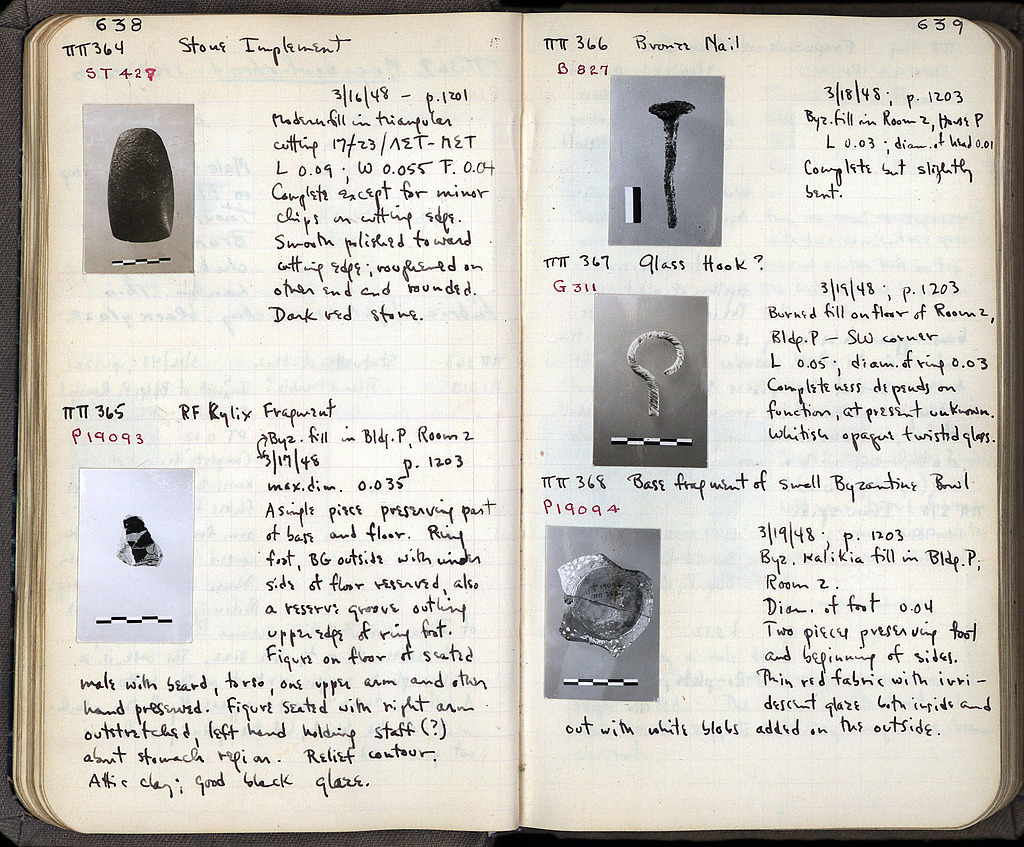 638
ΠΠ 364 Stone Implement
ST 427
3/16/48 – p. 1201
Modern fill in triangular
cutting 17/23/ΛΣΤ-ΜΣΤ
L 0.09; W 0.055 T. 0.04
Complete except for minor
chips on cutting edge.
Smooth polished toward
cutting edge; roughened on
other end and rounded.
Dark red stone.
ΠΠ 365 RF Kylix Fragment
P19093
Byz. fill in Bldg. P, Room 2
3/17/48 p. 1203
max. dim. 0.035
A single piece preserving part
of base and floor. Ring
foot, BG outside with under
side of floor reserved, also
a reserve groove outling
upper edge of ring foot.
Figure on floor of seated
male with beard, torso, one upper arm and other
hand preserved. Figure seated with right arm
outstretched, left hand holding staff (?)
about stomach region. Relief contour.
Attic clay; good black glaze.
639
ΠΠ 366 Bronze Nail
B 827
3/18/48; p. 1203
Byz. fill in Room 2, House P
L 0.03; diam. of head 0.01
Complete but slightly
bent.
ΠΠ 367 Glass Hook?
G 311
3/19/48; p. 1203
Burned fill on floor of Room 2,
Bldg. P – SW corner
L 0.05; diam. of ring 0.03
Completeness depends on
function, at present unknown.
Whitish opaque twisted glass.
ΠΠ 368 Base fragment of small Byzantine Bowl
P19094
3/19/48; p. 1203
Byz. Kalikia fill in Bldg. P;
Room 2.
Diam. of foot 0.04
Two pieces preserving foot
and beginning of sides.
Thin red fabric with irri-
descent glaze both inside and
out with white blobs added on the outside.